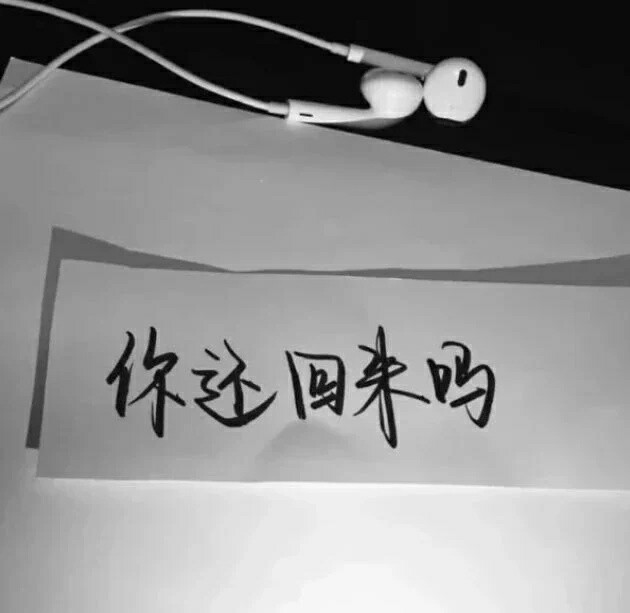 你还回来吗